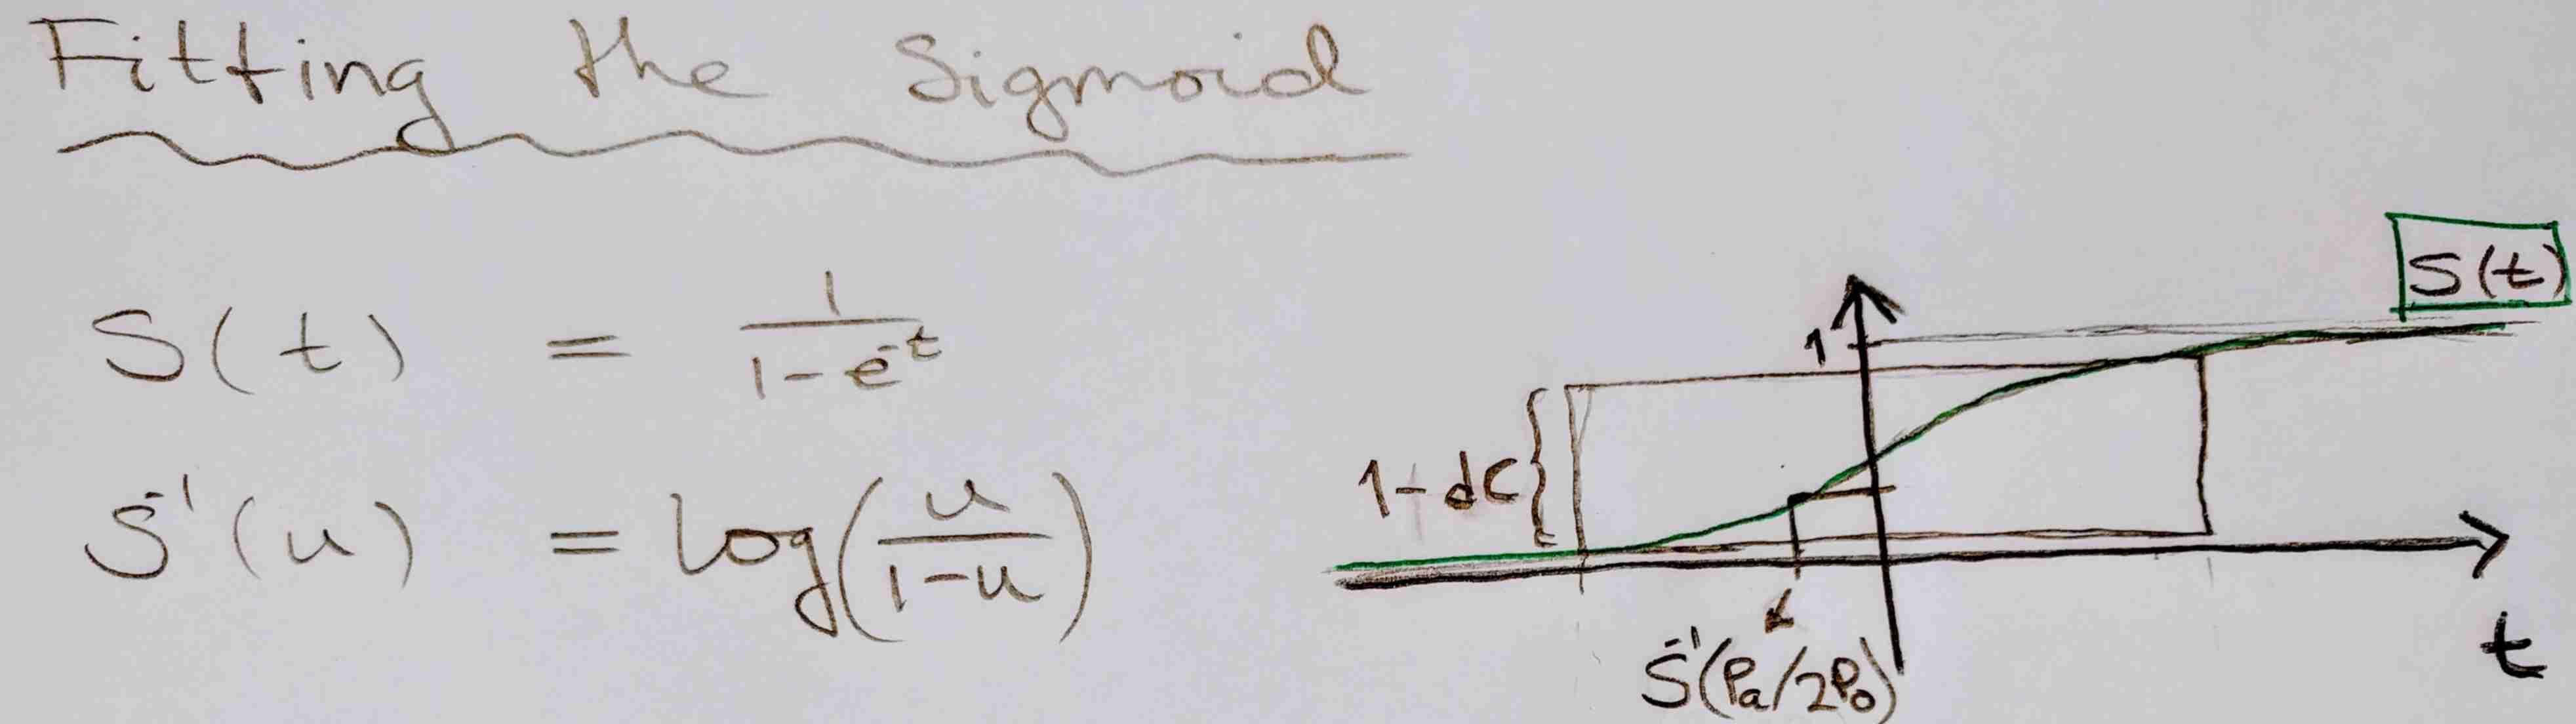 Fitting the Sigmoid
S(t) = 1/(1-e^-t)
S^-1(u) = log(u/(1-u))
S(t)
1
1-dC
S^-1(Pa/2P0)
t